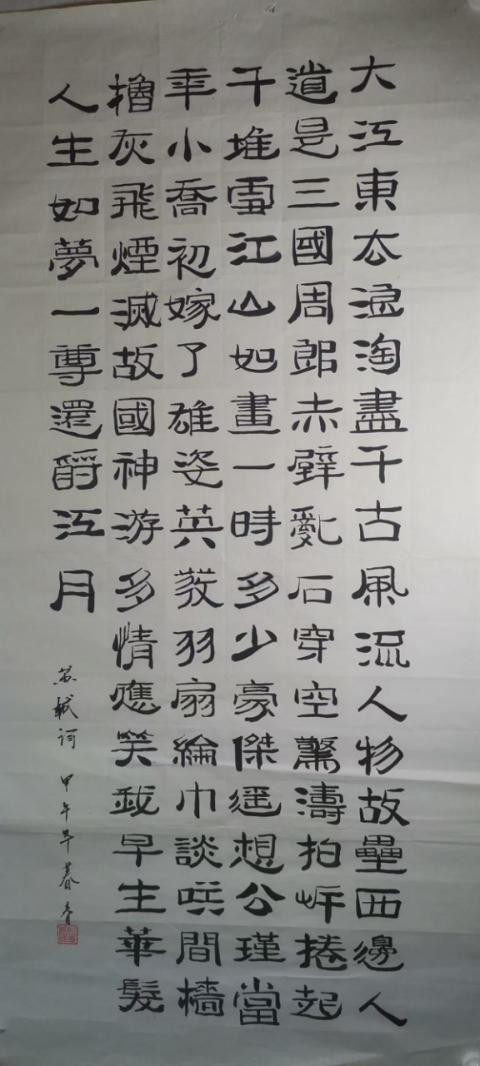 大江東去浪淘盡千古風流人物故壘西邊人
道是三國周郎赤壁亂石穿空驚濤拍岸捲起
千堆雪江山如畫一時多少豪傑遥想公瑾當
年小喬初嫁了雄姿英發羽扇綸巾談咲間檣
櫓灰飛煙滅故國神游多情應笑我早生華髮
人生如夢一尊還酹江月
苏軾詞 甲午年春